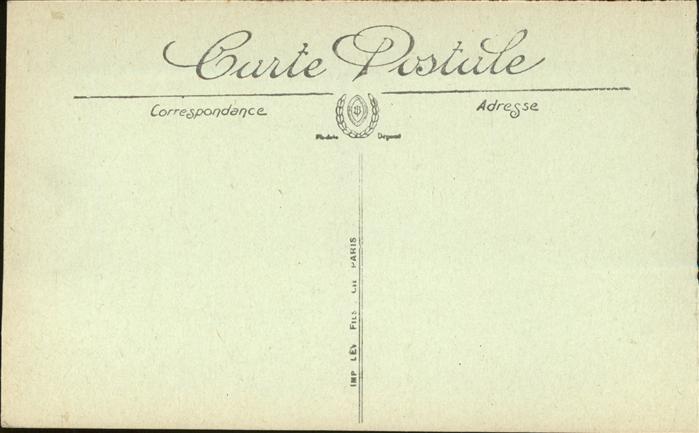 Carte Postale
Correspondance
Adresse
Déposé
IMP LÉVY FILS PARIS